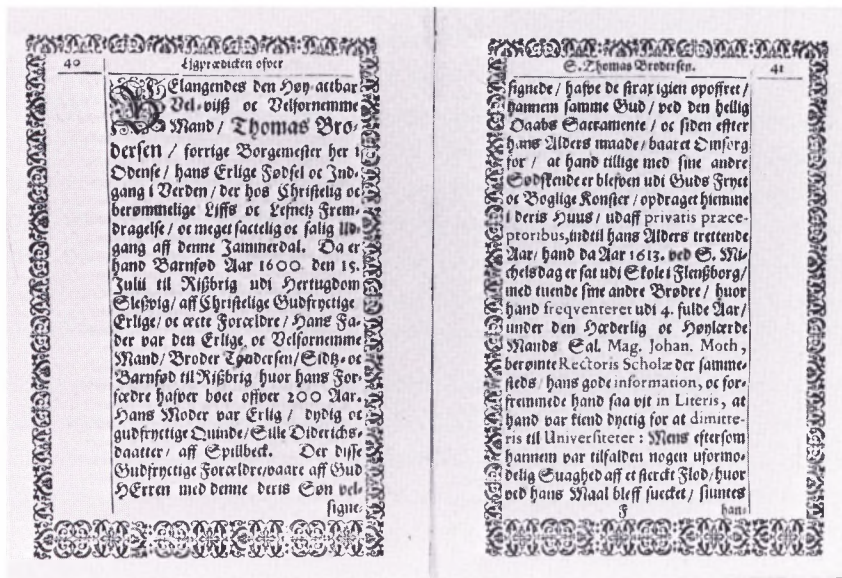 40 Ligprædicken ofver
BElangendes den Høy-actbar
Vel-viiß oc Velfornemme
Mand / Thomas Bro-
dersen / forrige Borgemester her i
Odense / hans Erlige Fødsel oc Ind-
gang i Verden / der hos Christelig oc
berømmelige Liffs oc Lefnetz Frem-
dragelse / oc meget sactelig oc salig Ud-
gang aff denne Jammerdal. Da er
hand Barnfød Aar 1600 den 15.
Julii til Rißbrig udi Hertugdom
Sleßvig / aff Christelige Gudfryctige
Erlige / oc æcte Forældre / Hans Fa-
der var den Erlige oc Velfornemme
Mand / Broder Tøndersen / Sidtz-oc
Barnfød til Rißbrig huor hans For-
fædre hafver boet ofver 200 Aar.
Hans Moder var Erlig / dydig oc
gudfryctige Quinde / Sille Diderichs-
daatter / aff Spillbeck. Der disse
Gudfryctige Forældre / vaare aff Gud
HErren med denne deris Søn vel-
signe-
S. Thomas Brodersen. 41
signede / hafve de strax igien opoffret /
hannem samme Gud / ved den hellig
Daabs Sacramente / oc siden effter
hans Alders maade / baaret Omsorg
for / at hand tillige med sine andre
Sødskende er blefven udi Guds Fryct
oc Boglige Konster / opdraget hiemme
i deris Huus / udaff privatis præce-
ptoribus, indtil hans Alders trettende
Aar / hand da Aar 1613. ved S. Mi-
chels dag er sat udi Skole i Flenßborg /
med tuende sine andre Brødre / huor
hand freqventeret udi 4. fulde Aar /
under den Hæderlig oc Høylærde
Mands Sal. Mag. Johan. Moth,
berømte Rectoris Scholæ der samme-
steds / hans gode information, oc for-
fremmede hand saa vit in Literis, at
hand var kiend dyctig for at dimitte-
ris til Universiteter : Mens eftersom
hannem var tilfalden nogen uformo-
delig Suaghed aff et sterckt Flod / huor
ved hans Maal bleff suecket / siuntes
F han-